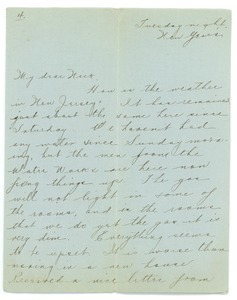 4.
Tuesday night.
New Years.
My dear Nico
How is the weather
in New Jersey? It has remained
just about the same here since
Saturday. We haven't had
any water since Sunday morn-
ing, but the men from the
Water Works are here now
fixing things up. The gas
will not light in some of
the rooms, and in the rooms
that we do get the gas it is
very dim. Everything seems
to be upset. It is worse than
moving in a new house
Received a nice letter from